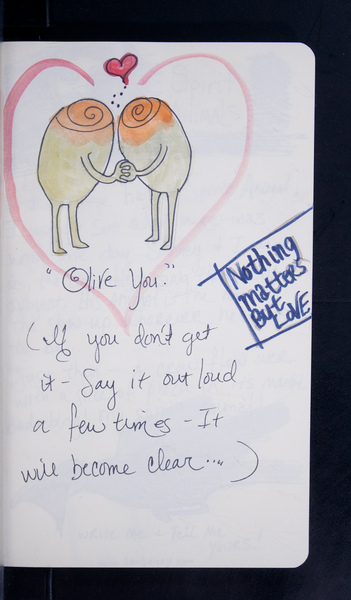 "Olive You."
Nothing
matters
But
LOVE
(If you don't get
it - Say it out loud
a few times - It
will become clear....)